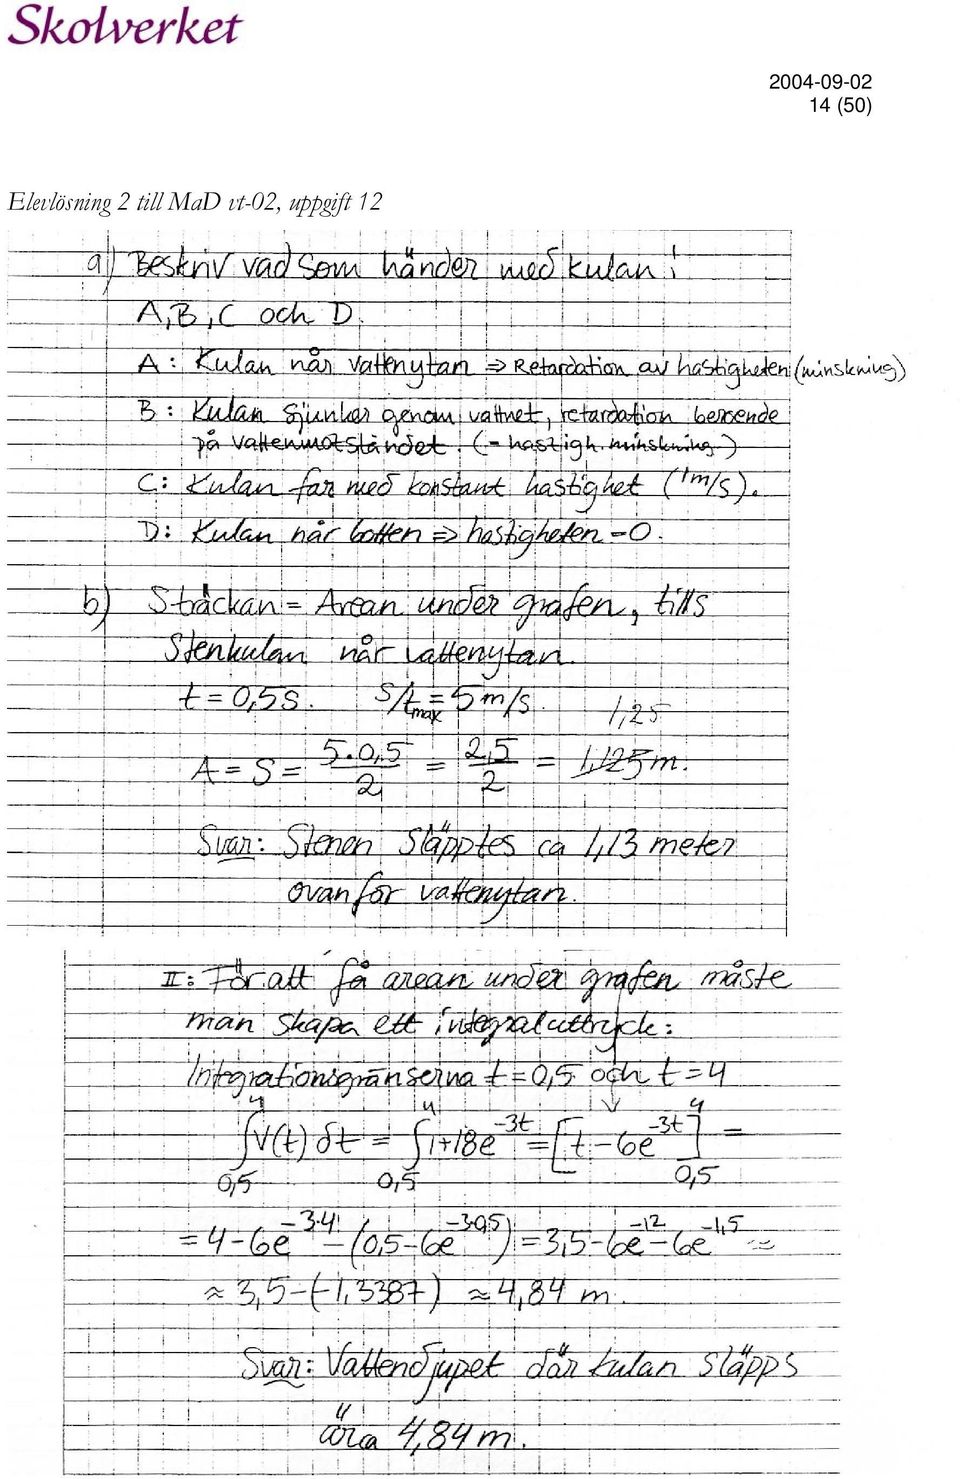 Skolverket
2004-09-02
14 (50)
Elevlösning 2 till MaD vt-02, uppgift 12
a) Beskriv vad som händer med kulan i
A, B, C och D.
A: Kulan når vattenytan ⇒ Retardation av hastigheten (minskning)
B: Kulan sjunker genom vattnet, retardation beroende
på vattenmotståndet. (= hastigh. minskning.)
C: Kulan far med konstant hastighet (1m/s).
D: Kulan når botten ⇒ hastigheten = 0.
b) Sträckan = Arean under grafen, tills
Stenkulan når vattenytan.
t = 0,5s. s/t max = 5 m/s. 1,25
A = S = 5·0,5/2 = 2,5/2 = 1,125 m.
Svar: Stenen släpptes ca 1,13 meter
ovanför vattenytan.
II: För att få arean under grafen måste
man skapa ett integraluttryck:
Integrationsgränserna t=0,5 och t=4
∫_{0,5}^{4} V(t) dt = ∫_{0,5}^{4} 1+18e^{-3t} = [t-6e^{-3t}]_{0,5}^{4} =
= 4-6e^{-3·4} - (0,5-6e^{-3·0,5}) = 3,5-6e^{-12}-6e^{-1,5} ≈
≈ 3,5-(-1,3387) ≈ 4,84 m.
Svar: Vattendjupet där kulan släpps
är ca 4,84 m.